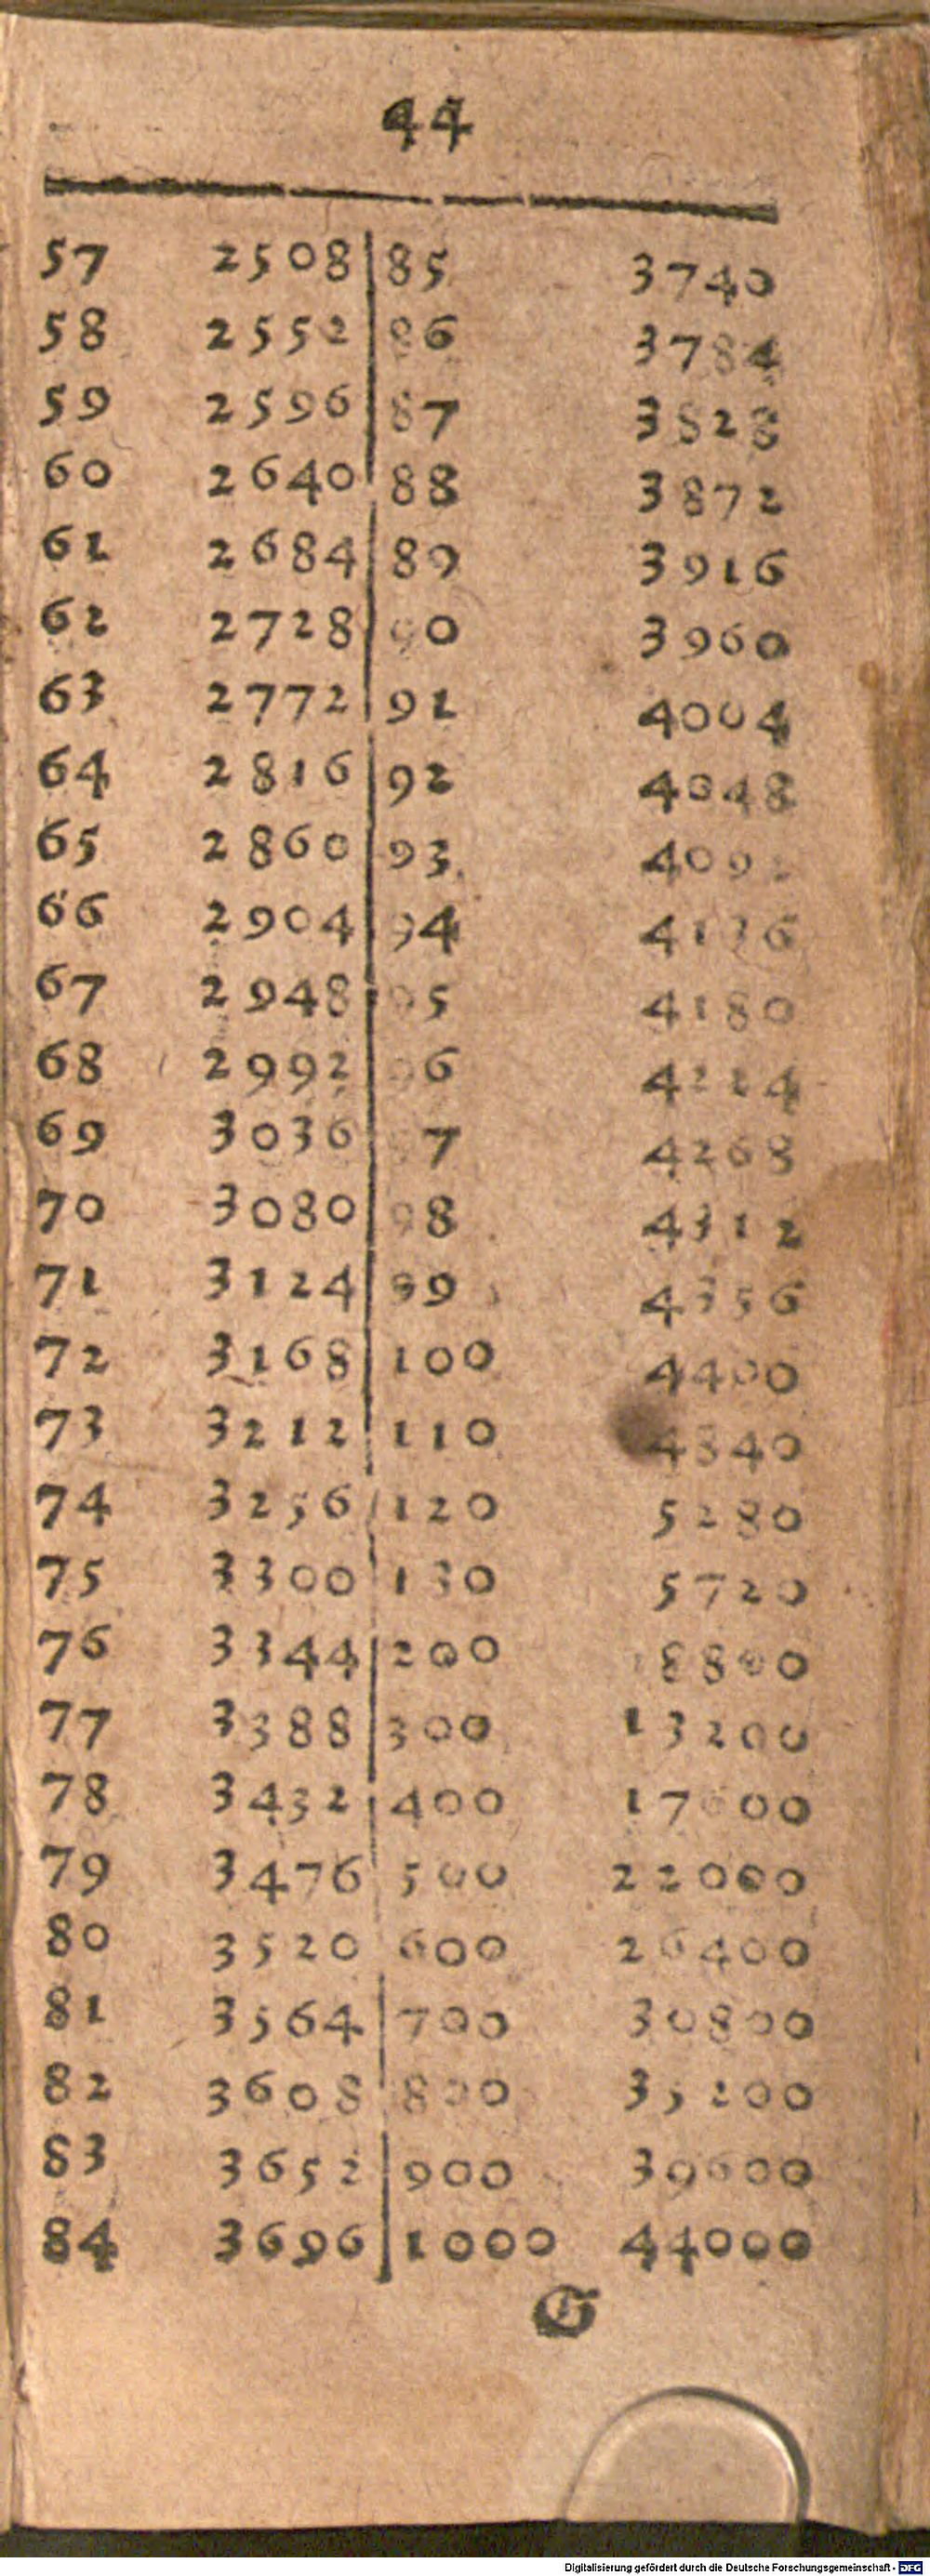 44
57 2508 85 3740
58 2552 86 3784
59 2596 87 3828
60 2640 88 3872
61 2684 89 3916
62 2728 90 3960
63 2772 91 4004
64 2816 92 4048
65 2860 93 4092
66 2904 94 4136
67 2948 95 4180
68 2992 96 4224
69 3036 97 4268
70 3080 98 4312
71 3124 99 4356
72 3168 100 4400
73 3212 110 4840
74 3256 120 5280
75 3300 130 5720
76 3344 200 8800
77 3388 300 13200
78 3432 400 17600
79 3476 500 22000
80 3520 600 26400
81 3564 700 30800
82 3608 800 35200
83 3652 900 39600
84 3696 1000 44000
G
Digitalisierung gefördert durch die Deutsche Forschungsgemeinschaft - DFG